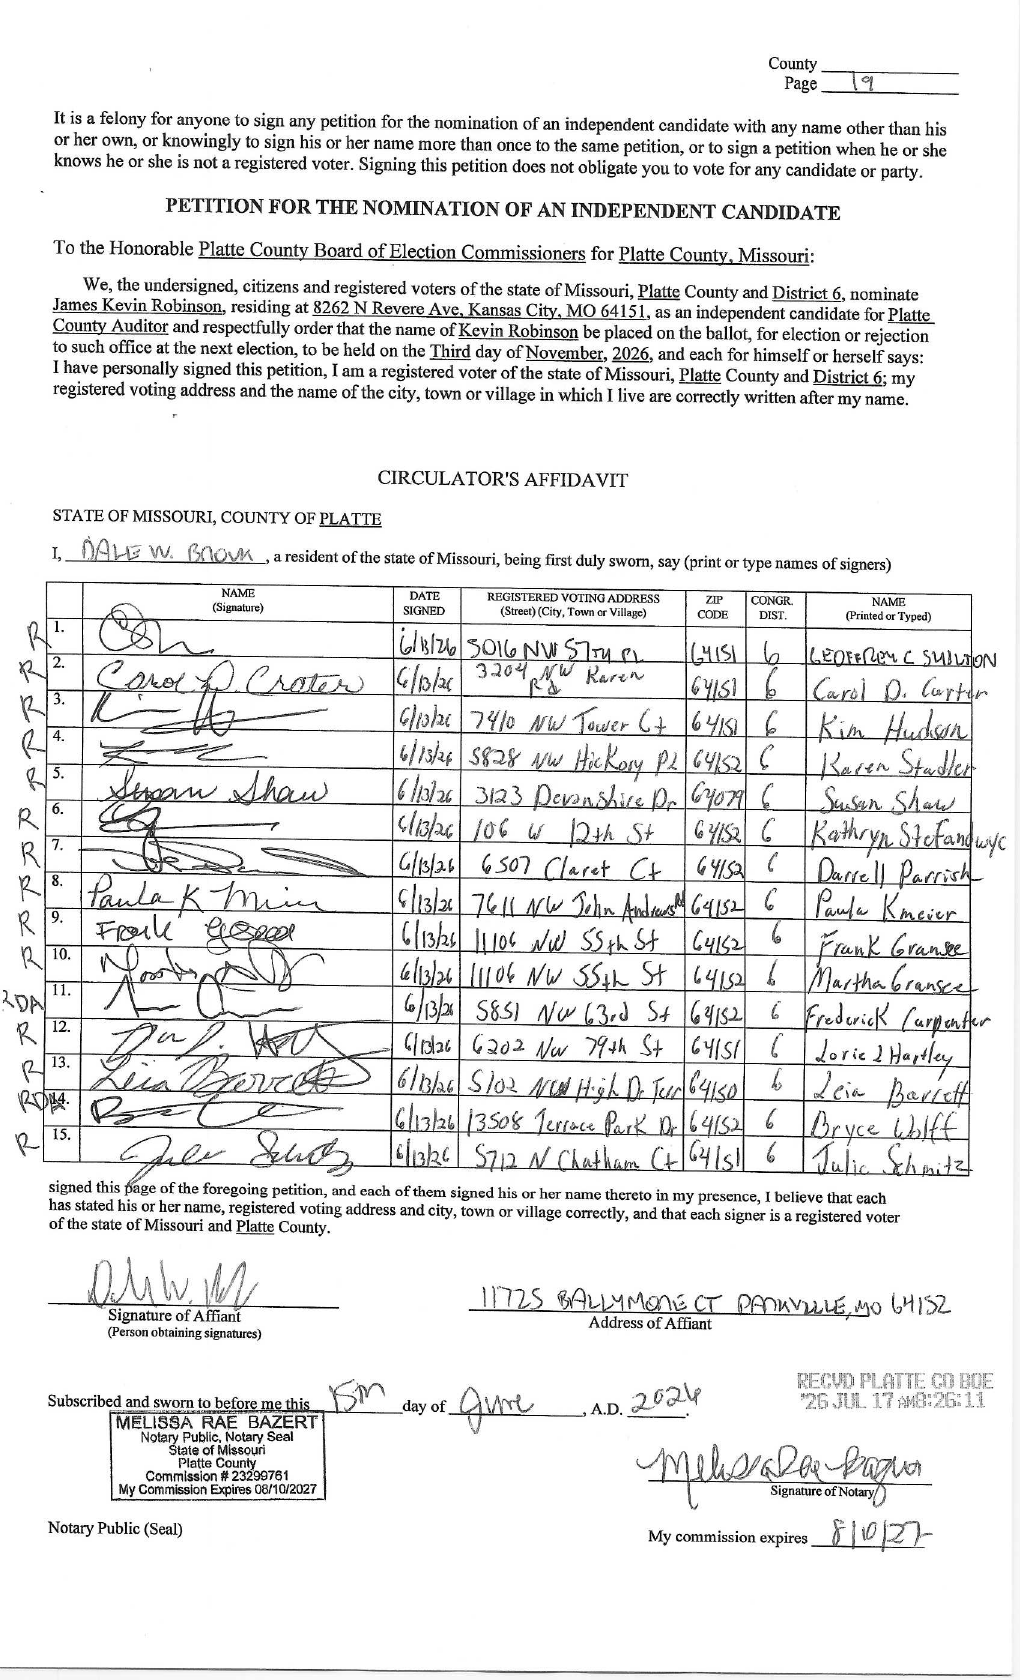 County
Page 19
It is a felony for anyone to sign any petition for the nomination of an independent candidate with any name other than his
or her own, or knowingly to sign his or her name more than once to the same petition, or to sign a petition when he or she
knows he or she is not a registered voter. Signing this petition does not obligate you to vote for any candidate or party.
PETITION FOR THE NOMINATION OF AN INDEPENDENT CANDIDATE
To the Honorable Platte County Board of Election Commissioners for Platte County, Missouri:
We, the undersigned, citizens and registered voters of the state of Missouri, Platte County and District 6, nominate
James Kevin Robinson, residing at 8262 N Revere Ave, Kansas City, MO 64151, as an independent candidate for Platte
County Auditor and respectfully order that the name of Kevin Robinson be placed on the ballot, for election or rejection
to such office at the next election, to be held on the Third day of November, 2026, and each for himself or herself says:
I have personally signed this petition, I am a registered voter of the state of Missouri, Platte County and District 6; my
registered voting address and the name of the city, town or village in which I live are correctly written after my name.
CIRCULATOR'S AFFIDAVIT
STATE OF MISSOURI, COUNTY OF PLATTE
I, DALE W. , a resident of the state of Missouri, being first duly sworn, say (print or type names of signers)
NAME (Signature) DATE SIGNED REGISTERED VOTING ADDRESS (Street) (City, Town or Village) ZIP CODE CONGR. DIST. NAME (Printed or Typed)
R 1. 6/13/26 5016 NW 57TH PL 64151 6 C
R 2. Carol D. Crater 6/13/26 3204 NW Karen Rd 64151 6 Carol D.
R 3. 6/13/26 7410 NW Tower Ct 64151 6 Kim Hudson
R 4. 6/13/26 5828 NW Hickory Pl 64152 6 Karen Stadler
R 5. Susan Shaw 6/13/26 3123 Devonshire Dr 64079 6 Susan Shaw
R 6. 6/13/26 106 W 12th St 64152 6 Kathryn
R 7. 6/13/26 6507 Claret Ct 64152 6 Darrell Parrish
R 8. Paula K 6/13/26 7611 NW John Andrews Rd 64152 6 Paula Kmeier
R 9. Frank 6/13/26 11106 NW 55th St 64152 6 Frank Gransee
R 10. 6/13/26 11106 NW 55th St 64152 6 Martha Gransee
RDA 11. 6/13/26 5851 NW 63rd St 64152 6 Frederick Carpenter
R 12. 6/13/26 6202 NW 79th St 64151 6 Lorie J Hartley
R 13. Leia Barrett 6/13/26 5102 High Dr Terr 64150 6 Leia Barrett
RDA 14. 6/13/26 13508 Terrace Park Dr 64152 6 Bryce Wolff
R 15. Julie Schmitz 6/13/26 5712 N Chatham Ct 64151 6 Julie Schmitz
signed this page of the foregoing petition, and each of them signed his or her name thereto in my presence, I believe that each
has stated his or her name, registered voting address and city, town or village correctly, and that each signer is a registered voter
of the state of Missouri and Platte County.
Signature of Affiant
(Person obtaining signatures)
11725 BALLYMORE CT PARKVILLE, MO 64152
Address of Affiant
RECVD PLATTE CO BOE
'26 JUL 17 AM8:26:11
Subscribed and sworn to before me this 15th day of June, A.D. 2026.
MELISSA RAE BAZERT
Notary Public, Notary Seal
State of Missouri
Platte County
Commission # 23299761
My Commission Expires 08/10/2027
Melissa Rae
Signature of Notary
Notary Public (Seal)
My commission expires 8/10/27